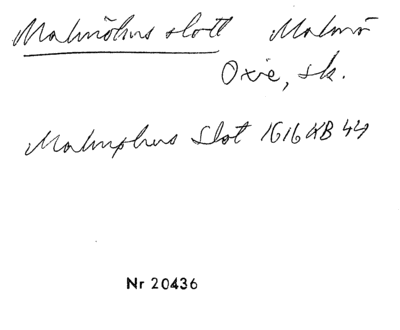 Malmöhus slott Malmö
Oxie, sk.
Malmøhus Slot 1616 KB 44
Nr 20436